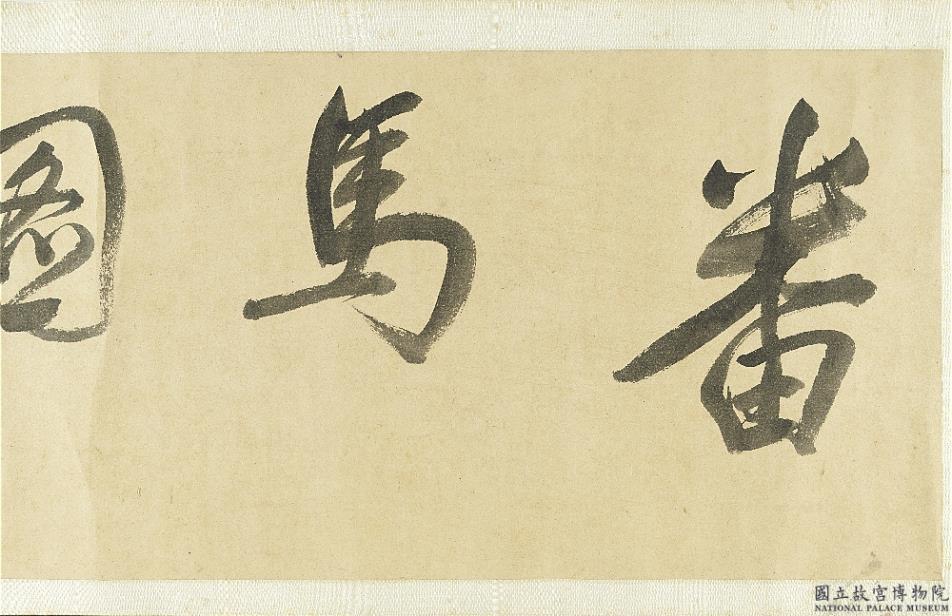 番馬圖
國立故宮博物院
NATIONAL PALACE MUSEUM